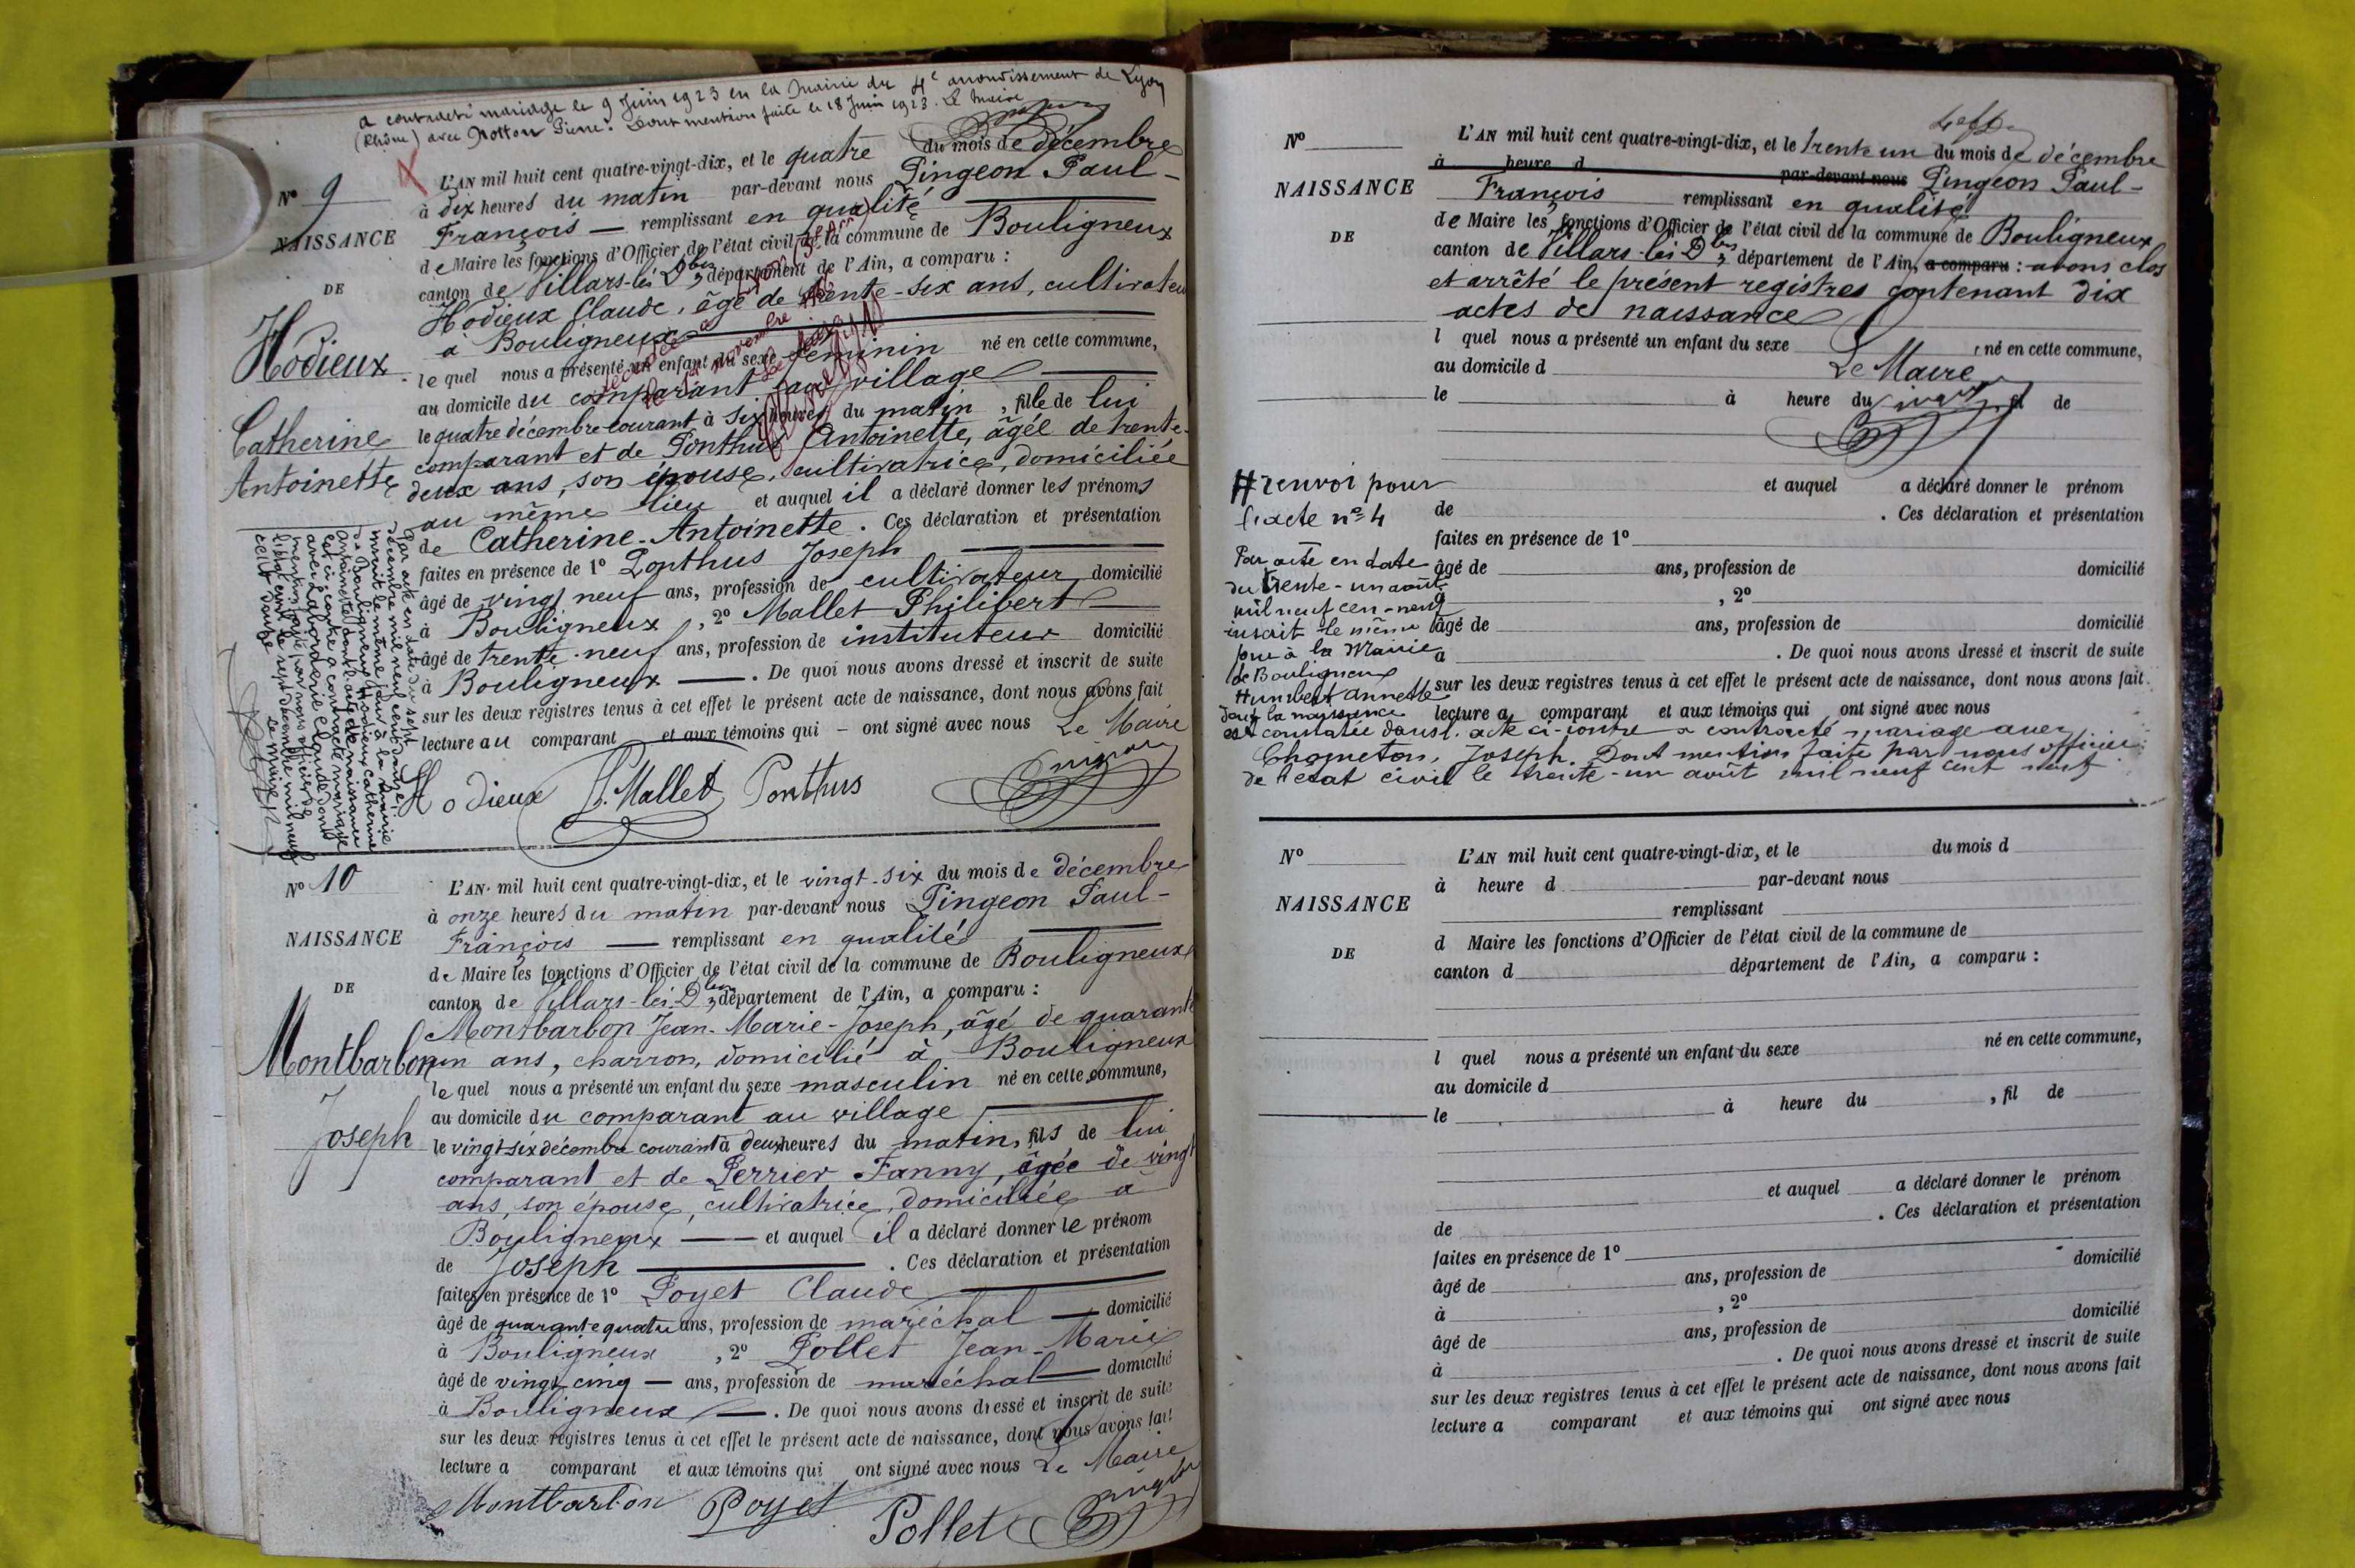 a contracté mariage le 9 Juin 1923 en la Mairie du 4e arrondissement de Lyon
(Rhône) avec Notton Pierre. Dont mention faite le 18 Juin 1923. Le Maire
No 9
NAISSANCE
DE
Hodieux
Catherine
Antoinette
L'AN mil huit cent quatre-vingt-dix, et le quatre du mois de décembre
à dix heures du matin par-devant nous Pingeon Paul-
François — remplissant en qualité
de Maire les fonctions d'Officier de l'état civil de la commune de Bouligneux
canton de Villars-les-Dbes, département de l'Ain, a comparu :
Hodieux Claude, âgé de trente-six ans, cultivateur
à Bouligneux
lequel nous a présenté un enfant du sexe féminin né en cette commune,
au domicile du comparant, au village
le quatre décembre courant à six heures du matin, fille de lui
comparant et de Ponthus Antoinette, âgée de trente-
deux ans, son épouse, cultivatrice, domiciliée
au même lieu et auquel il a déclaré donner les prénoms
de Catherine-Antoinette. Ces déclaration et présentation
faites en présence de 1º Ponthus Joseph
âgé de vingt neuf ans, profession de cultivateur domicilié
à Bouligneux, 2º Mallet Philibert
âgé de trente-neuf ans, profession de instituteur domicilié
à Bouligneux —. De quoi nous avons dressé et inscrit de suite
sur les deux registres tenus à cet effet le présent acte de naissance, dont nous avons fait
lecture au comparant et aux témoins qui - ont signé avec nous Le Maire
Hodieux P. Mallet Ponthus Pingeon
Par acte en date du sept
décembre mil neuf cent douze
inscrit le même jour à la mairie
de Bouligneux Hodieux Catherine
Antoinette dont l'acte de naissance
est ci-contre a contracté mariage
avec Laborderie Claude dont
mention faite par nous officier de
l'état civil le sept décembre mil neuf
cent douze
Le Maire
No 10
NAISSANCE
DE
Montbarbon
Joseph
L'AN mil huit cent quatre-vingt-dix, et le vingt-six du mois de décembre
à onze heures du matin par-devant nous Pingeon Paul-
François — remplissant en qualité
de Maire les fonctions d'Officier de l'état civil de la commune de Bouligneux
canton de Villars-les-Dbes, département de l'Ain, a comparu :
Montbarbon Jean-Marie-Joseph, âgé de quarante
un ans, charron, domicilié à Bouligneux
lequel nous a présenté un enfant du sexe masculin né en cette commune,
au domicile du comparant au village
le vingt-six décembre courant à deux heures du matin, fils de lui
comparant et de Perrier Fanny, âgée de vingt
ans, son épouse, cultivatrice, domiciliée à
Bouligneux — et auquel il a déclaré donner le prénom
de Joseph. Ces déclaration et présentation
faites en présence de 1º Poyet Claude
âgé de quarante quatre ans, profession de maréchal — domicilié
à Bouligneux, 2º Pollet Jean-Marie
âgé de vingt cinq — ans, profession de maréchal — domicilié
à Bouligneux —. De quoi nous avons dressé et inscrit de suite
sur les deux registres tenus à cet effet le présent acte de naissance, dont nous avons fait
lecture a comparant et aux témoins qui ont signé avec nous Le Maire
Montbarbon Poyet Pollet Pingeon
No
NAISSANCE
DE
L'AN mil huit cent quatre-vingt-dix, et le trente un du mois de décembre
à heure d par-devant nous Pingeon Paul-
François remplissant en qualité
de Maire les fonctions d'Officier de l'état civil de la commune de Bouligneux
canton de Villars-les-Dbes, département de l'Ain, a comparu : avons clos
et arrêté le présent registres contenant dix
actes de naissance
l quel nous a présenté un enfant du sexe , né en cette commune,
au domicile d Le Maire
le à heure du , fil de
Pingeon
et auquel a déclaré donner le prénom
de . Ces déclaration et présentation
faites en présence de 1º
âgé de ans, profession de domicilié
à , 2º
âgé de ans, profession de domicilié
à . De quoi nous avons dressé et inscrit de suite
sur les deux registres tenus à cet effet le présent acte de naissance, dont nous avons fait
lecture a comparant et aux témoins qui ont signé avec nous
# renvoi pour
l'acte no 4
Par acte en date
du trente-un août
mil neuf cent-neuf
inscrit le même
jour à la Mairie
de Bouligneux
Humbert Annette
dont la naissance
est constatée dans l'acte ci-contre a contracté mariage avec
Chometon, Joseph. Dont mention faite par nous officier
de l'état civil le trente-un août mil neuf cent neuf
No
NAISSANCE
DE
L'AN mil huit cent quatre-vingt-dix, et le du mois d
à heure d par-devant nous
remplissant
d Maire les fonctions d'Officier de l'état civil de la commune de
canton d département de l'Ain, a comparu :
l quel nous a présenté un enfant du sexe né en cette commune,
au domicile d
le à heure du , fil de
et auquel a déclaré donner le prénom
de . Ces déclaration et présentation
faites en présence de 1º
âgé de ans, profession de domicilié
à , 2º
âgé de ans, profession de domicilié
à . De quoi nous avons dressé et inscrit de suite
sur les deux registres tenus à cet effet le présent acte de naissance, dont nous avons fait
lecture a comparant et aux témoins qui ont signé avec nous